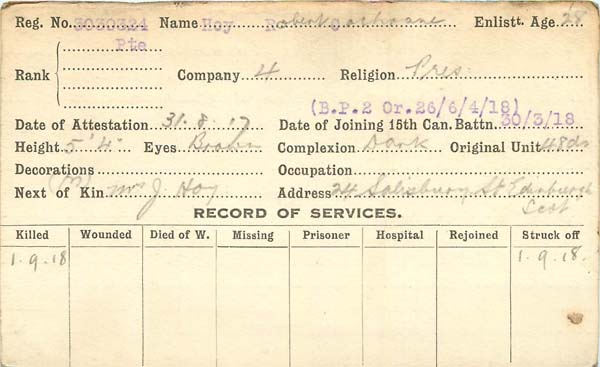 Reg. No. 3030324 Name Hoy Robert Enlistt. Age 28
Pte
Rank Company 4 Religion Pres.
(B.P.2 Or.26/6/4/18)
Date of Attestation 31.8.17 Date of Joining 15th Can. Battn. 30/3/18
Height 5'4" Eyes Brown Complexion Dark Original Unit 48th
Decorations Occupation
(M)
Next of Kin Mrs J. Hoy Address 24 Salisbury St Edinburgh
Scot
RECORD OF SERVICES.
Killed Wounded Died of W. Missing Prisoner Hospital Rejoined Struck off
1.9.18 1.9.18.